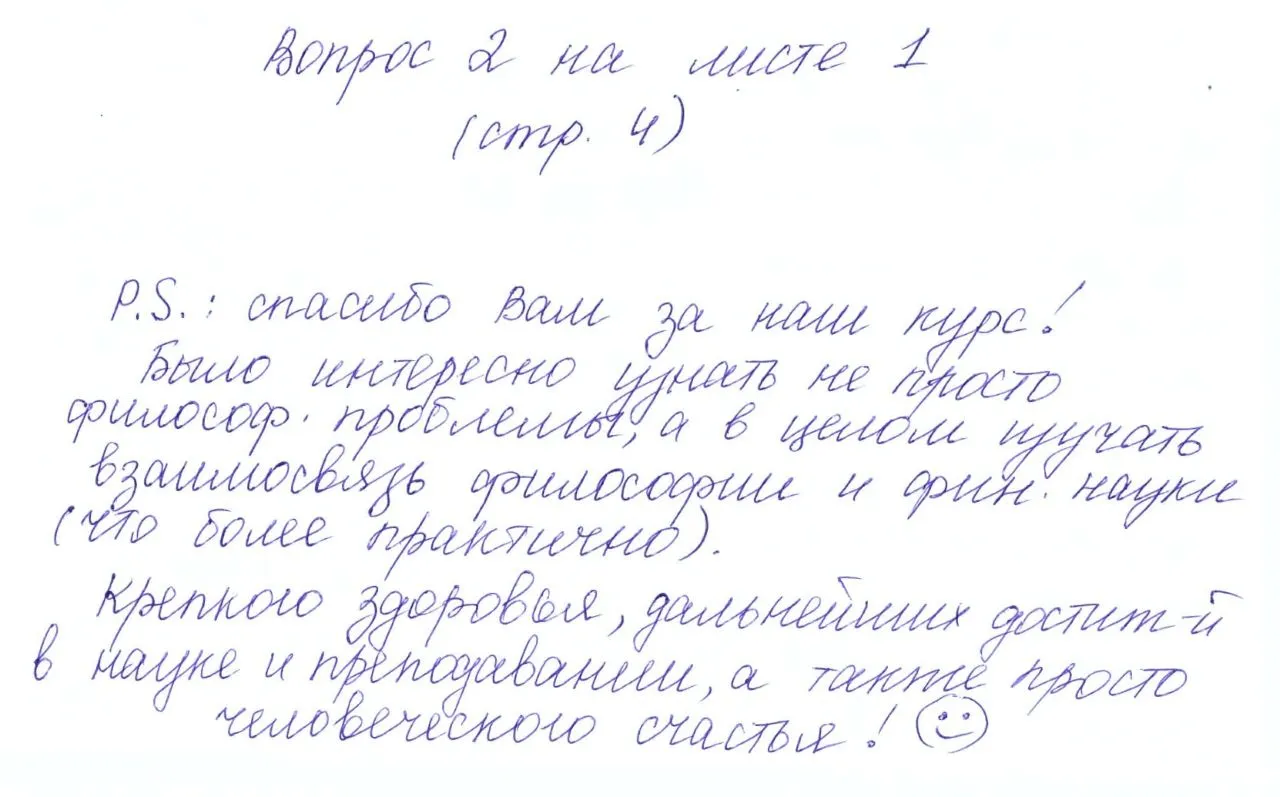 Вопрос 2 на листе 1
(стр. 4)
P.S.: спасибо Вам за наш курс!
Было интересно узнать не просто
философ. проблемы, а в целом изучать
взаимосвязь философии и фин. науки
(что более практично).
Крепкого здоровья, дальнейших достиж-й
в науке и преподавании, а также просто
человеческого счастья!